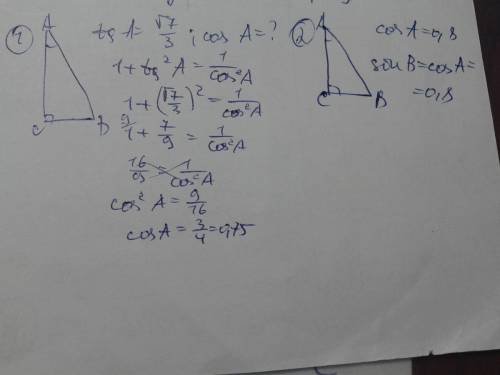 ① A
C B
tg A = √7/3 ; cos A = ?
1 + tg²A = 1/cos²A
1 + (√7/3)² = 1/cos²A
9/1 + 7/9 = 1/cos²A
16/9 = 1/cos²A
cos²A = 9/16
cos A = 3/4 = 0,75
② A
C B
cos A = 0,8
sin B = cos A =
= 0,8